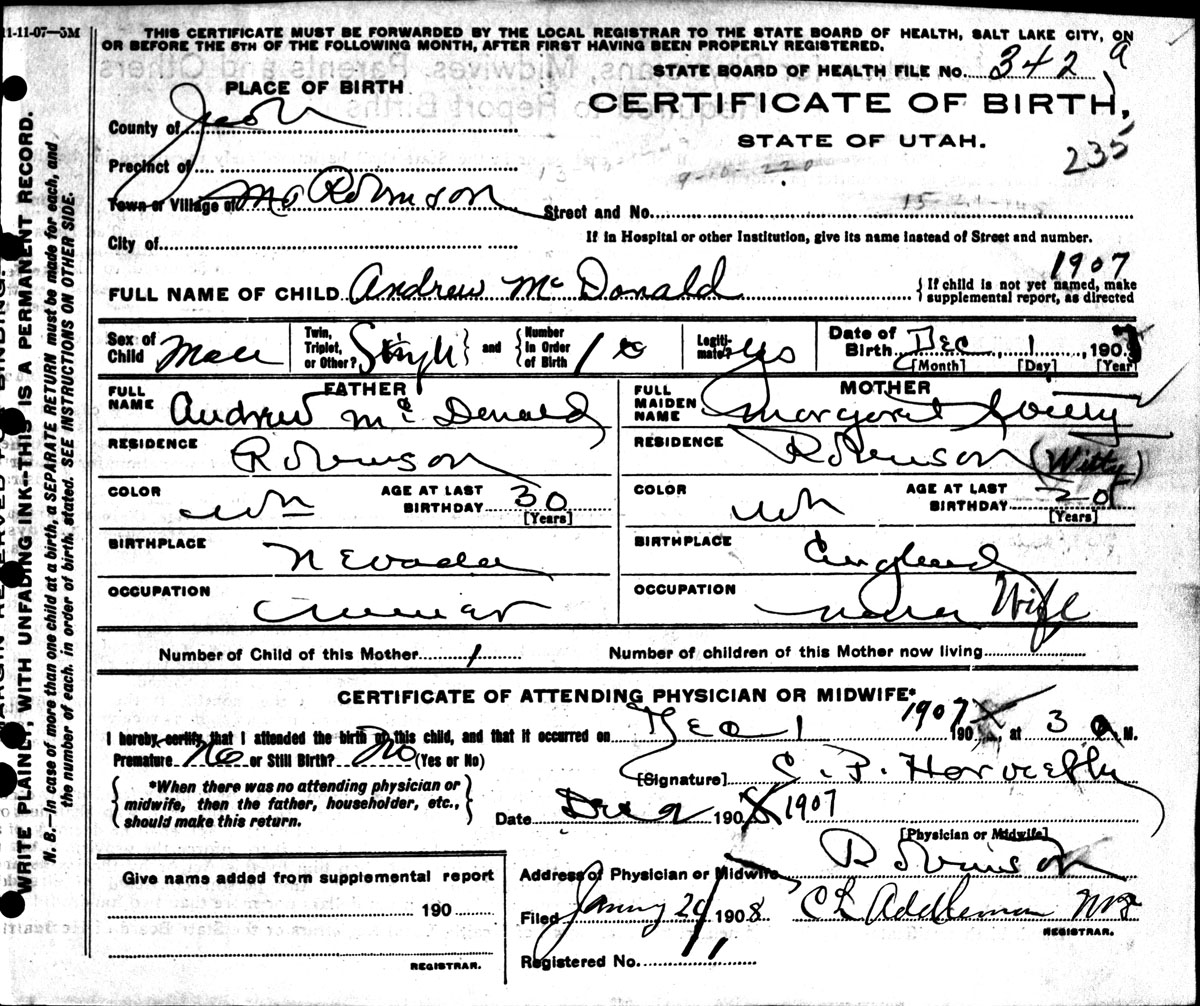 11-11-07—5M
THIS CERTIFICATE MUST BE FORWARDED BY THE LOCAL REGISTRAR TO THE STATE BOARD OF HEALTH, SALT LAKE CITY, ON
OR BEFORE THE 5TH OF THE FOLLOWING MONTH, AFTER FIRST HAVING BEEN PROPERLY REGISTERED.
STATE BOARD OF HEALTH FILE No. 342 a
PLACE OF BIRTH
CERTIFICATE OF BIRTH,
STATE OF UTAH.
235
County of Juab
Precinct of
Town or Village of Mc Robinson
Street and No.
City of
If in Hospital or other Institution, give its name instead of Street and number.
1907
FULL NAME OF CHILD Andrew McDonald
{If child is not yet named, make
supplemental report, as directed
Sex of Child Male
Twin, Triplet, or Other? Single
and
Number in Order of Birth 1
Legitimate? Yes
Date of Birth Dec 1, 1907
[Month] [Day] [Year]
FATHER
FULL NAME Andrew McDonald
RESIDENCE Robinson
COLOR wh
AGE AT LAST BIRTHDAY 30
[Years]
BIRTHPLACE Nevada
OCCUPATION
MOTHER
FULL MAIDEN NAME Margaret
RESIDENCE Robinson (Witty)
COLOR wh
AGE AT LAST BIRTHDAY 20
[Years]
BIRTHPLACE England
OCCUPATION Wife
Number of Child of this Mother 1
Number of children of this Mother now living
CERTIFICATE OF ATTENDING PHYSICIAN OR MIDWIFE*
I hereby certify that I attended the birth of this child, and that it occurred on Dec 1 1907 190, at 3 A M.
Premature No or Still Birth? No (Yes or No)
*When there was no attending physician or
midwife, then the father, householder, etc.,
should make this return.
[Signature] C. P.
Date Dec 9 1908 1907
[Physician or Midwife]
Give name added from supplemental report
190
REGISTRAR.
Address of Physician or Midwife Robinson
Filed Janury 29 1908 C L Adelleman
REGISTRAR.
Registered No. 11
WRITE PLAINLY, WITH UNFADING INK—THIS IS A PERMANENT RECORD.
N. B.—In case of more than one child at a birth, a SEPARATE RETURN must be made for each, and
the number of each, in order of birth, stated. SEE INSTRUCTIONS ON OTHER SIDE.